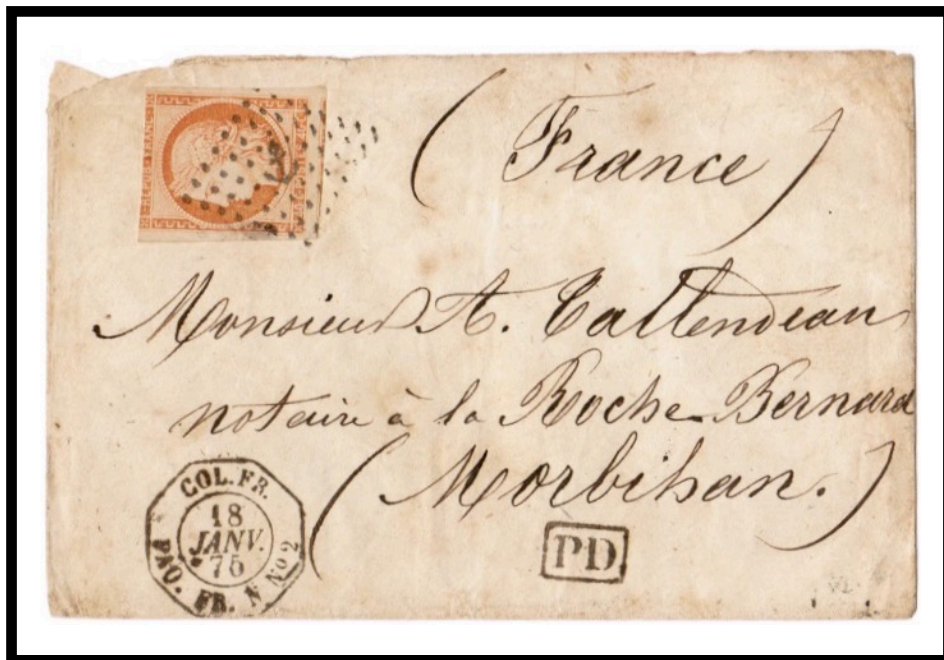 REPUB. FRANC.
( France )
Monsieur A. Tattendeau
notaire à la Roche-Bernard
( Morbihan. )
COL. FR.
18
JANV.
75
PAQ. FR. N No 2
PD